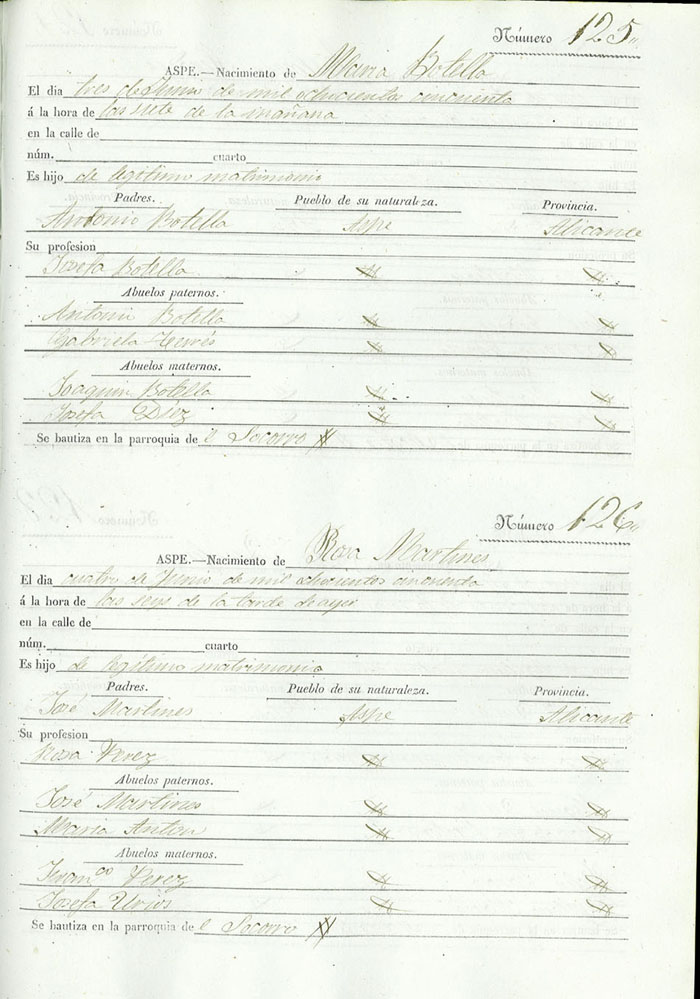 Número 125
ASPE.—Nacimiento de Maria Botella
El dia tres de Junio de mil ochocientos cincuenta
á la hora de las siete de la mañana
en la calle de
núm. cuarto
Es hijo de legitimo matrimonio
Padres. Pueblo de su naturaleza. Provincia.
Antonio Botella Aspe Alicante
Su profesion
Josefa Botella
Abuelos paternos.
Antonio Botella
Gabriela
Abuelos maternos.
Joaquin Botella
Josefa Diez
Se bautiza en la parroquia de el Socorro
Número 126
ASPE.—Nacimiento de Rosa Martines
El dia cuatro de Junio de mil ochocientos cincuenta
á la hora de las seys de la tarde de ayer
en la calle de
núm. cuarto
Es hijo de legitimo matrimonio
Padres. Pueblo de su naturaleza. Provincia.
José Martines Aspe Alicante
Su profesion
Rosa Perez
Abuelos paternos.
José Martines
Maria Anton
Abuelos maternos.
Franco Perez
Josefa Urios
Se bautiza en la parroquia de el Socorro